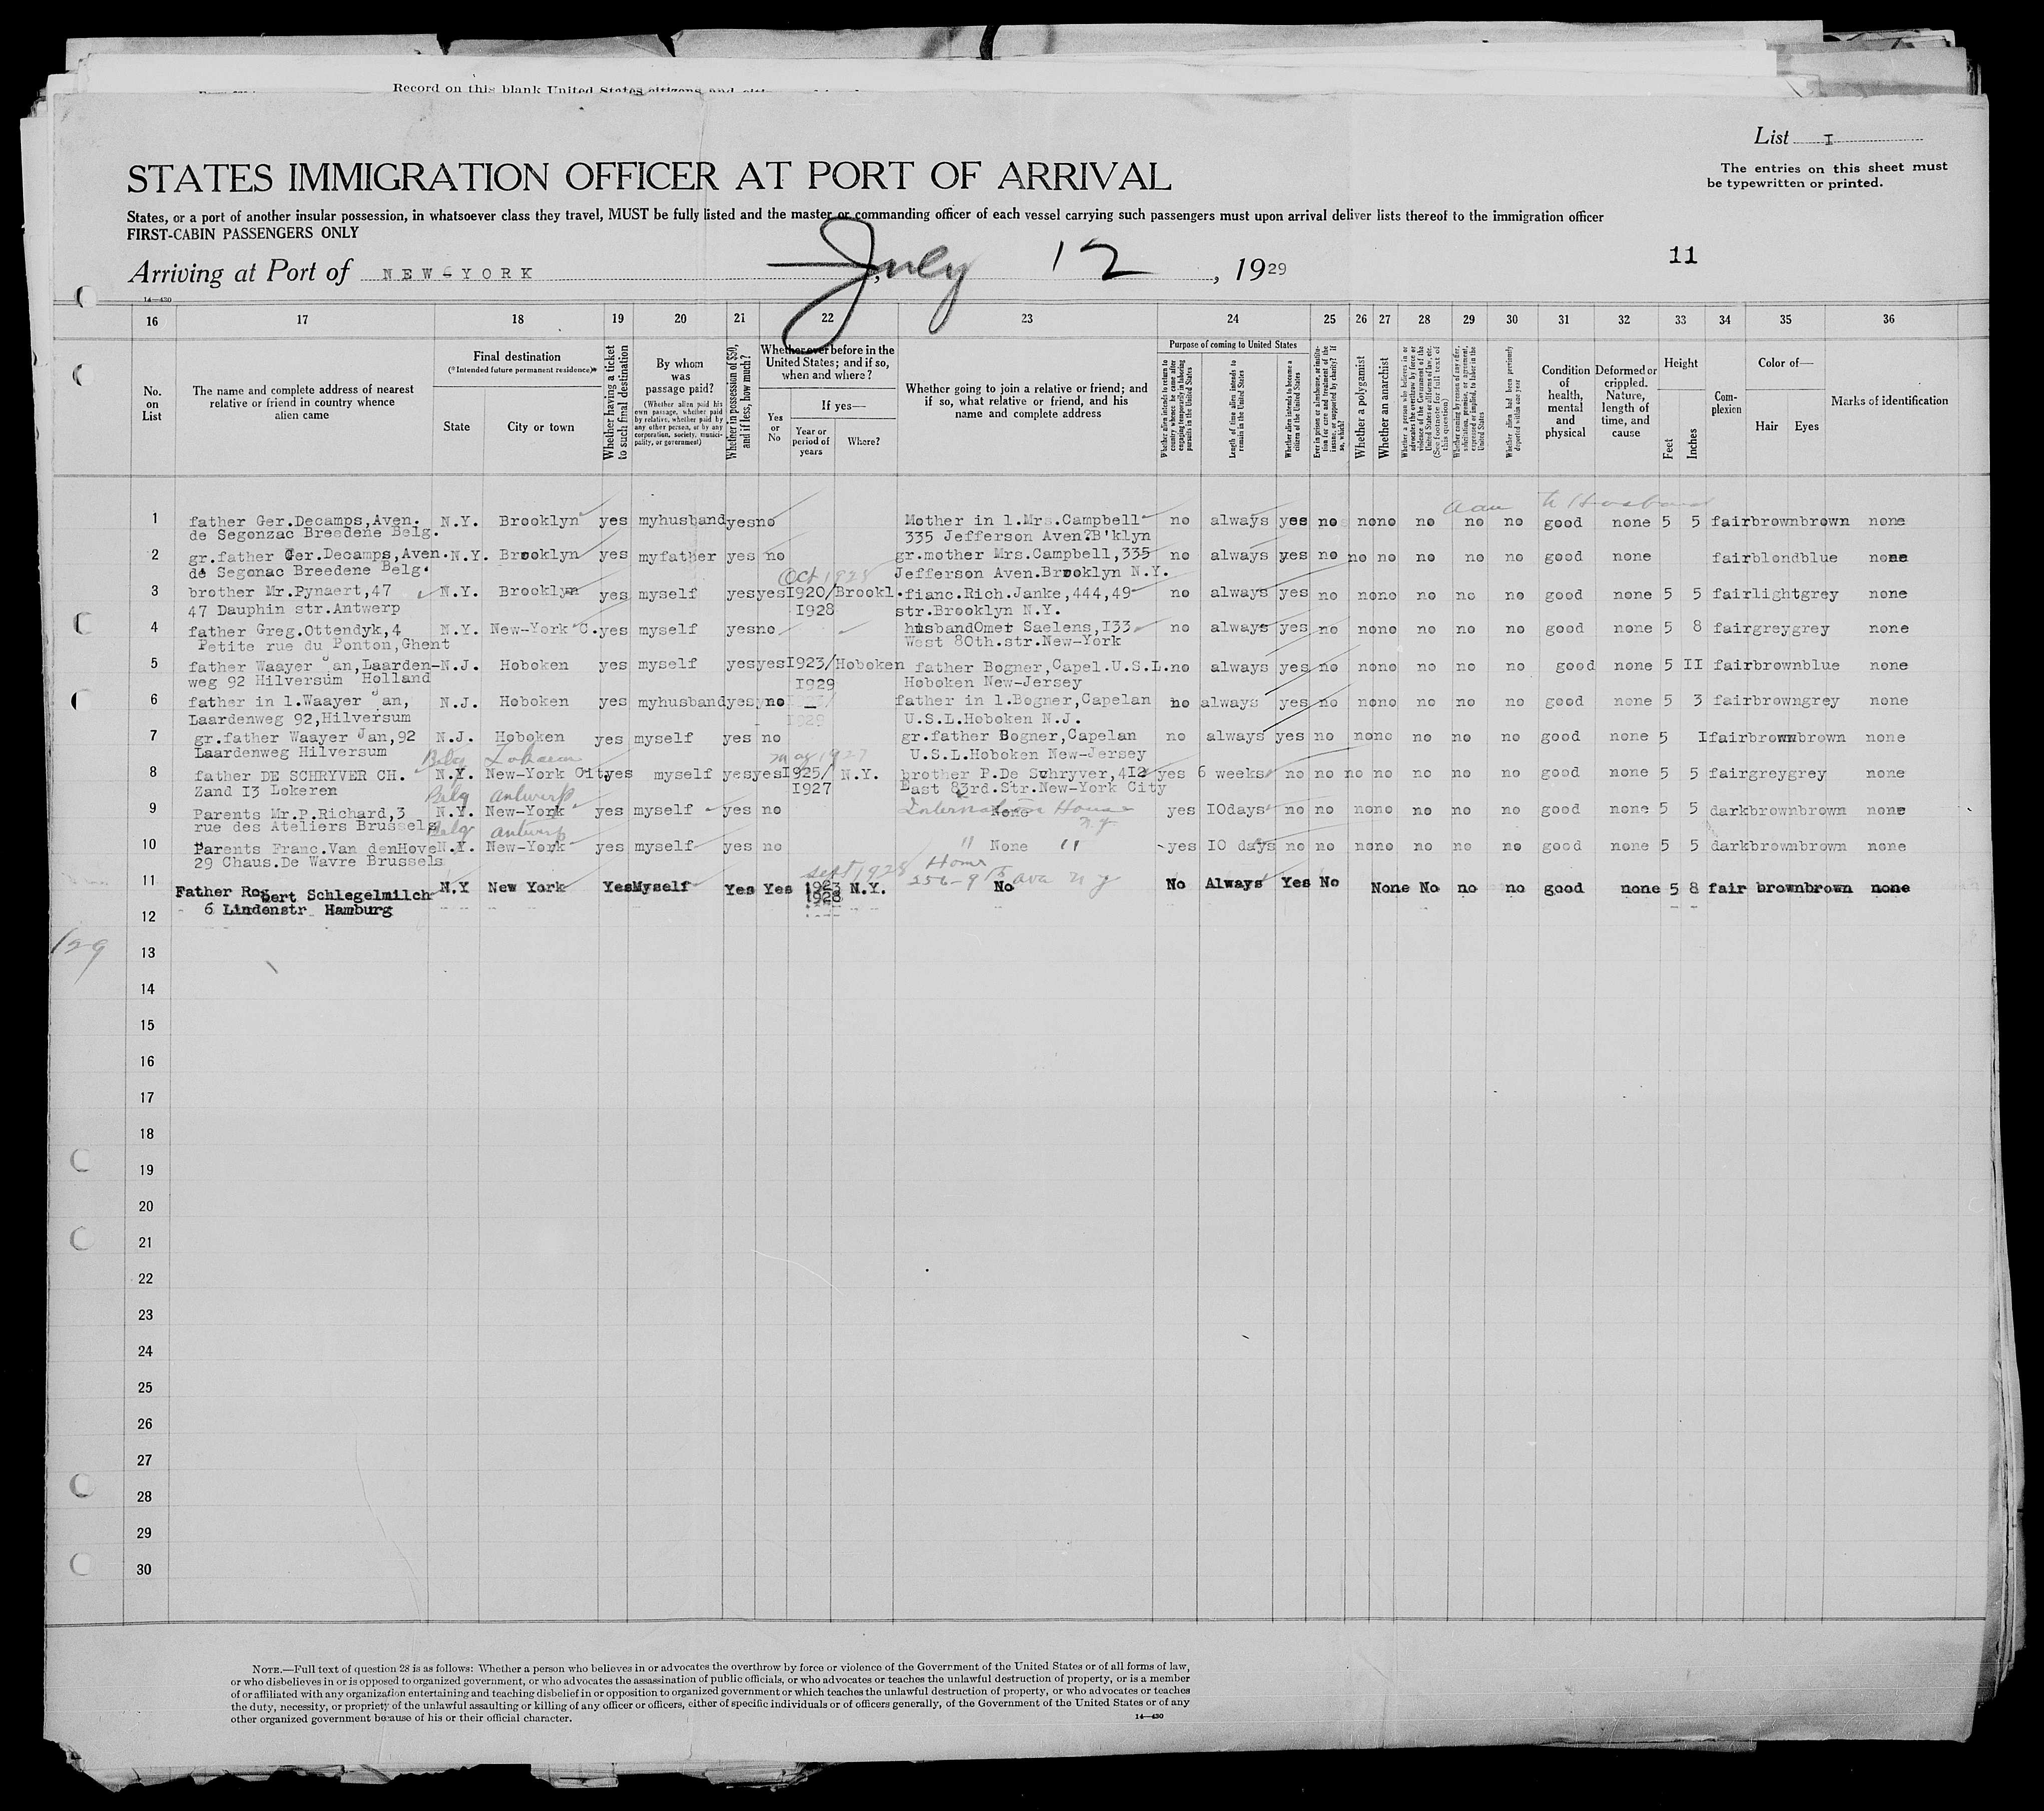 Record on this blank United States citizens and
List I
The entries on this sheet must
be typewritten or printed.
STATES IMMIGRATION OFFICER AT PORT OF ARRIVAL
States, or a port of another insular possession, in whatsoever class they travel, MUST be fully listed and the master or commanding officer of each vessel carrying such passengers must upon arrival deliver lists thereof to the immigration officer
FIRST-CABIN PASSENGERS ONLY
11
Arriving at Port of NEW-YORK, July 12, 1929
14—430
16 17 18 19 20 21 22 23 24 25 26 27 28 29 30 31 32 33 34 35 36
No. on List
The name and complete address of nearest relative or friend in country whence alien came
Final destination
(*Intended future permanent residence)*
State
City or town
Whether having a ticket to such final destination
By whom was passage paid?
(Whether alien paid his own passage, whether paid by relative, whether paid by any other person, or by any corporation, society, municipality, or government)
Whether in possession of $50, and if less, how much?
Whether ever before in the United States; and if so, when and where?
Yes or No
If yes—
Year or period of years
Where?
Whether going to join a relative or friend; and if so, what relative or friend, and his name and complete address
Purpose of coming to United States
Whether alien intends to return to country whence he came after engaging temporarily in laboring pursuits in the United States
Length of time alien intends to remain in the United States
Whether alien intends to become a citizen of the United States
Ever in prison or almshouse, or institution for care and treatment of the insane, or supported by charity? If so, which?
Whether a polygamist
Whether an anarchist
Whether a person who believes in or advocates the overthrow by force or violence of the Government of the United States or all forms of law, etc. (See footnote for full text of this question)
Whether coming by reason of any offer, solicitation, promise, or agreement, expressed or implied, to labor in the United States
Whether alien had been previously deported within one year
Condition of health, mental and physical
Deformed or crippled. Nature, length of time, and cause
Height
Feet
Inches
Complexion
Color of—
Hair
Eyes
Marks of identification
1 father Ger.Decamps,Aven. N.Y. Brooklyn yes myhusband yes no Mother in l.Mrs.Campbell no always yes no no no no no no good none 5 5 fair brown brown none
de Segonzac Breedene Belg. 335 Jefferson Aven?B'klyn
2 gr.father Ger.Decamps,Aven. N.Y. Brooklyn yes myfather yes no gr.mother Mrs.Campbell,335 no always yes no no no no no no good none fair blond blue none
de Segonac Breedene Belg. Jefferson Aven.Brooklyn N.Y.
Oct 1928
3 brother Mr.Pynaert,47 N.Y. Brooklyn yes myself yes yes I920/ Brookl. fianc.Rich.Janke,444,49 no always yes no no no no no no good none 5 5 fair light grey none
47 Dauphin str.Antwerp I928 str.Brooklyn N.Y.
4 father Greg.Ottendyk,4 N.Y. New-York C. yes myself yes no husbandOmer Saelens,I33 no always yes no no no no no no good none 5 8 fair grey grey none
Petite rue du Ponton,Ghent West 80th.str.New-York
5 father Waayer Jan,Laarden- N.J. Hoboken yes myself yes yes I923/ Hoboken father Bogner,Capel.U.S.L. no always yes no no no no no no good none 5 II fair brown blue none
weg 92 Hilversum Holland I929 Hoboken New-Jersey
6 father in l.Waayer Jan, N.J. Hoboken yes myhusband yes no father in l.Bogner,Capelan no always yes no no no no no no good none 5 3 fair brown grey none
Laardenweg 92,Hilversum I929 U.S.L.Hoboken N.J.
7 gr.father Waayer Jan,92 N.J. Hoboken yes myself yes no gr.father Bogner,Capelan no always yes no no no no no no good none 5 I fair brown brown none
Laardenweg Hilversum U.S.L.Hoboken New-Jersey
Belg Lokeren May 1927
8 father DE SCHRYVER CH. N.Y. New-York City yes myself yes yes I925/ N.Y. brother P.De Schryver,4I2 yes 6 weeks no no no no no no no good none 5 5 fair grey grey none
Zand I3 Lokeren I927 East 83rd.Str.New-York City
Belg Antwerp
9 Parents Mr.P.Richard,3 N.Y. New-York yes myself yes no None yes IOdays no no no no no no no good none 5 5 dark brown brown none
rue des Ateliers Brussels Internation House N.Y.
Belg Antwerp
10 Parents Franc.Van denHove N.Y. New-York yes myself yes no " None " yes IO days no no no no no no no good none 5 5 dark brown brown none
29 Chaus.De Wavre Brussels
Sept 1928 Home
256-9th Ave N Y
11 Father Rogbert Schlegelmilch N.Y New York Yes Myself Yes Yes 1923 N.Y. No No Always Yes No None No no no good none 5 8 fair brown brown none
6 Lindenstr Hamburg 1928
12
129
13
14
15
16
17
18
19
20
21
22
23
24
25
26
27
28
29
30
NOTE.—Full text of question 28 is as follows: Whether a person who believes in or advocates the overthrow by force or violence of the Government of the United States or of all forms of law,
or who disbelieves in or is opposed to organized government, or who advocates the assassination of public officials, or who advocates or teaches the unlawful destruction of property, or is a member
of or affiliated with any organization entertaining and teaching disbelief in or opposition to organized government or which teaches the unlawful destruction of property, or who advocates or teaches
the duty, necessity, or propriety of the unlawful assaulting or killing of any officer or officers, either of specific individuals or of officers generally, of the Government of the United States or of any
other organized government because of his or their official character.
14—430